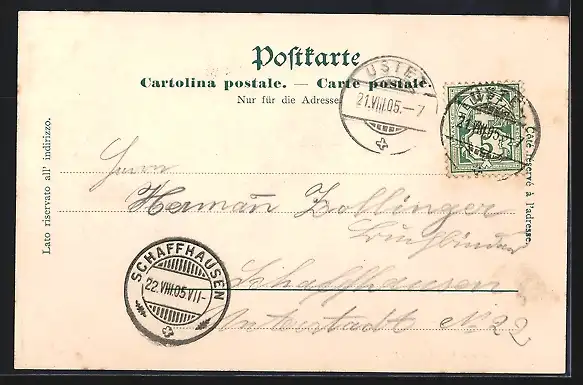 Postkarte
Cartolina postale. — Carte postale.
Nur für die Adresse.
USTER
21.VIII.05.–7
USTER
21.VIII.05.–7
5
Lato riservato all' indirizzo.
Côté réservé à l'adresse.
Herrn
Hermañ Zollinger
Buchbinder
Schaffhausen
Unterstadt No 22
SCHAFFHAUSEN
22.VIII.05.VII–